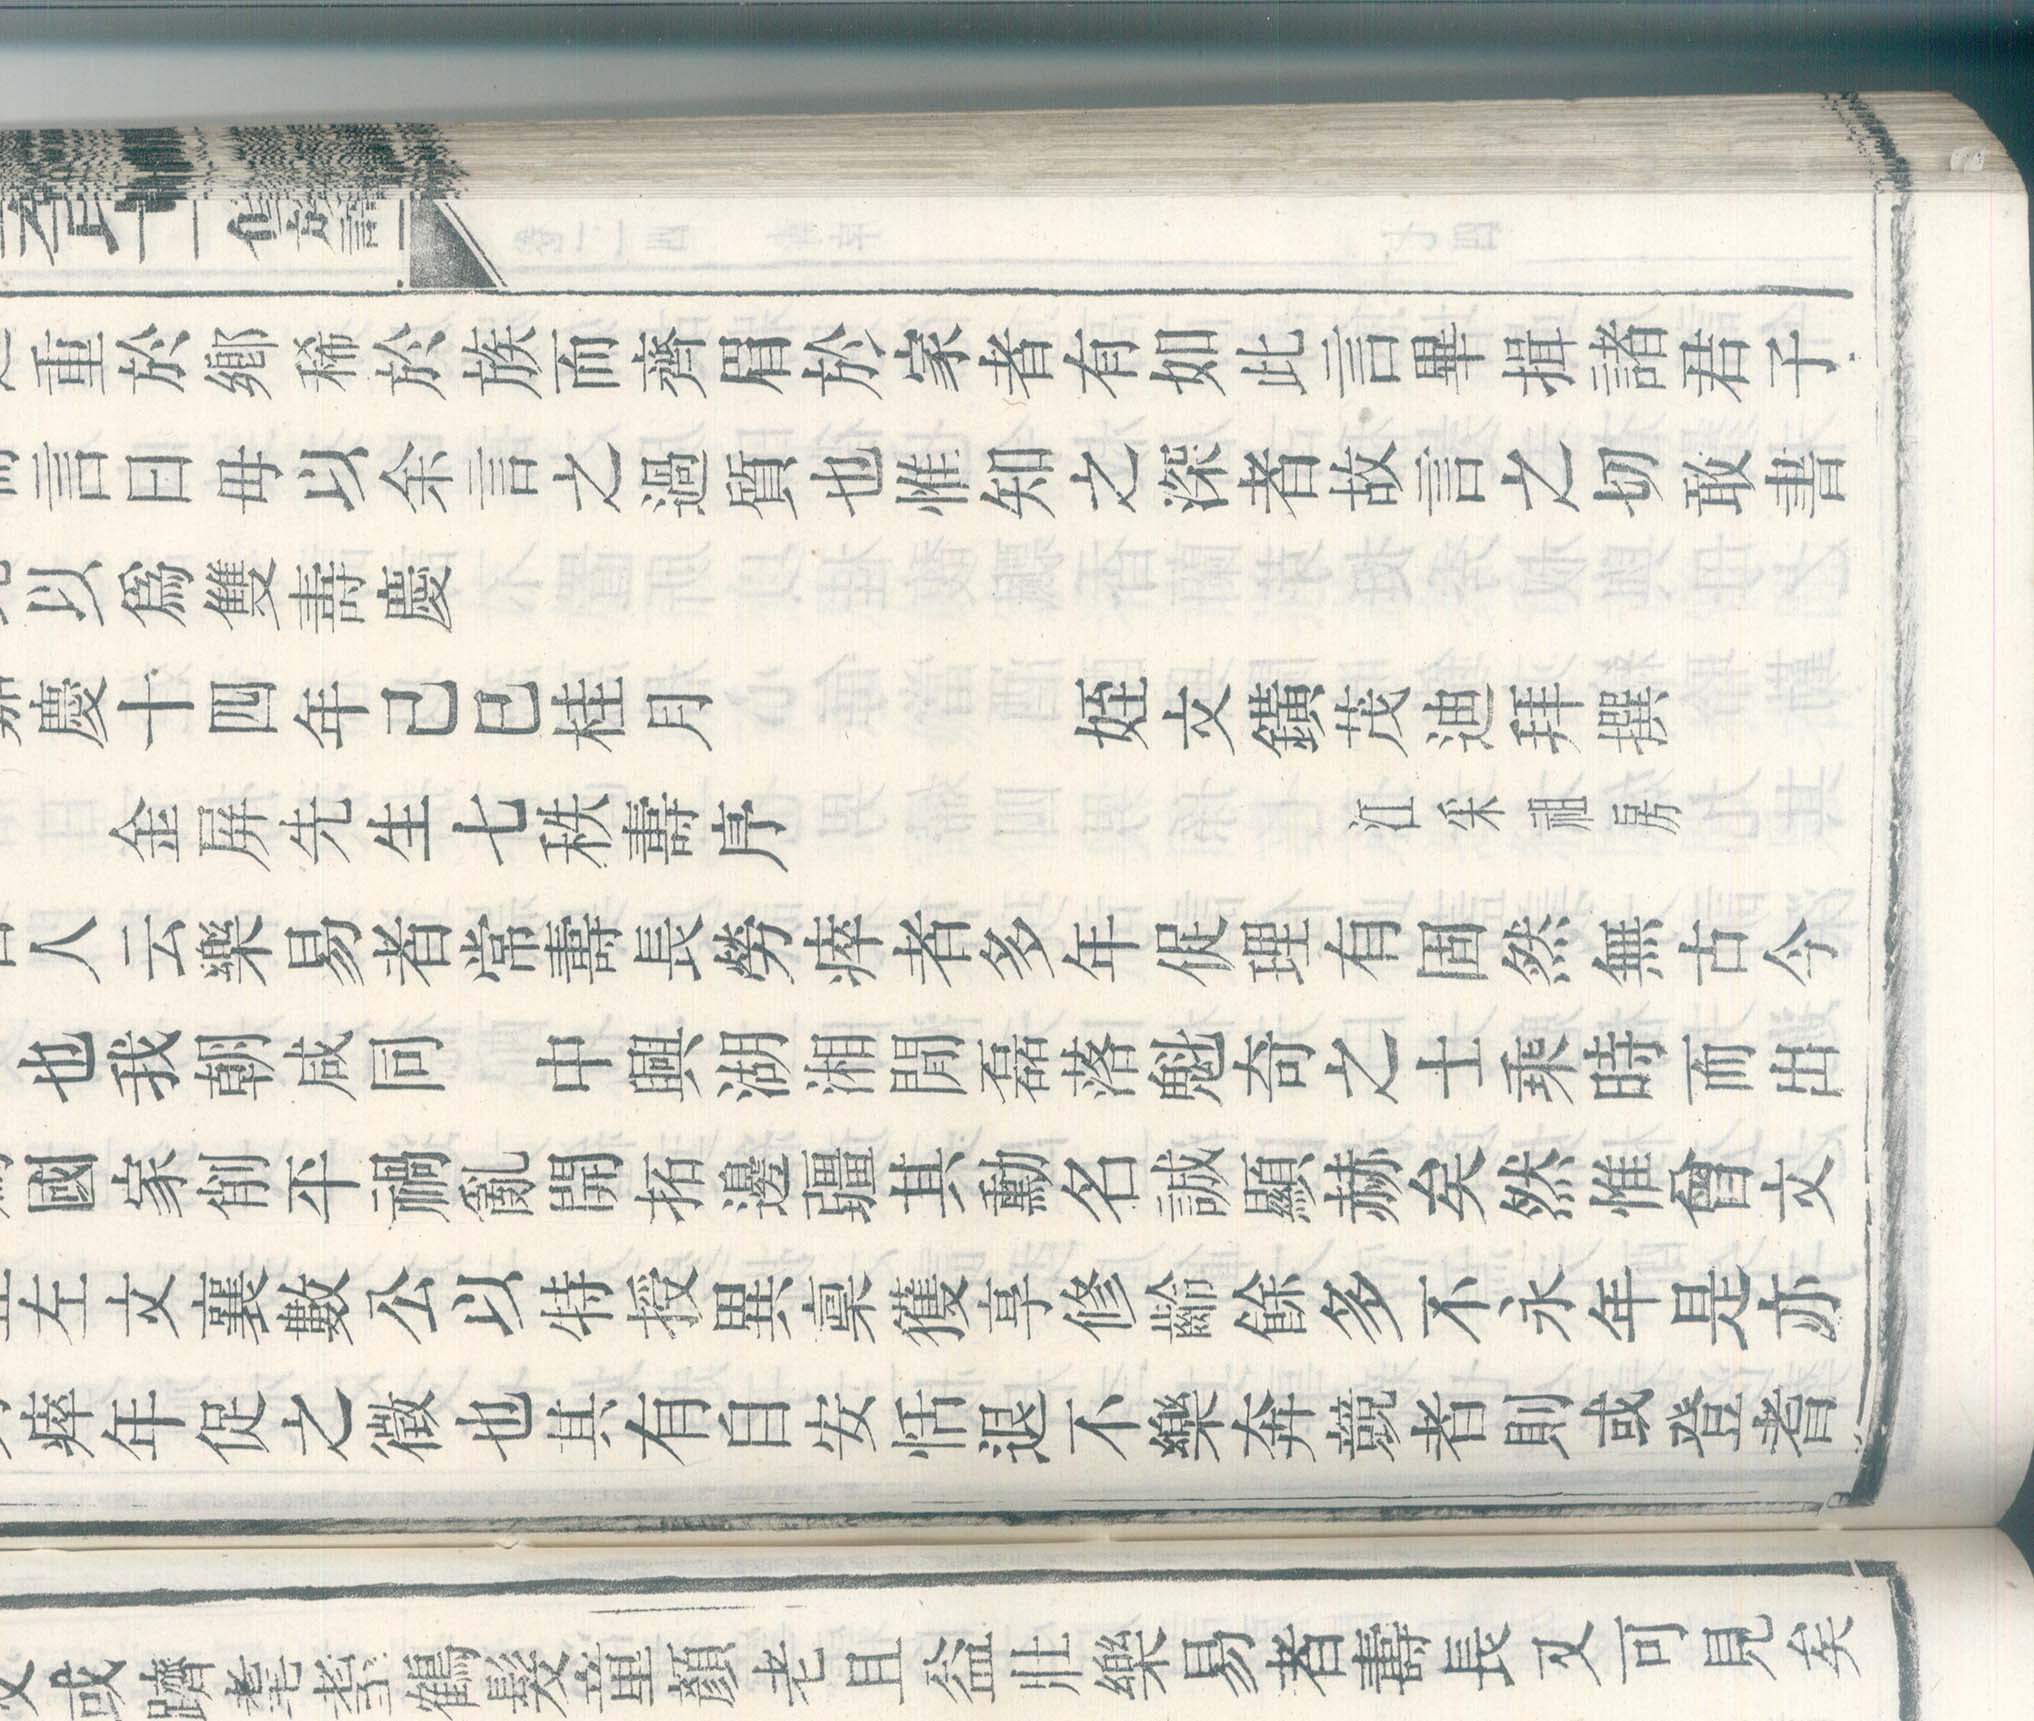 重於鄉稀於族而齊眉於家者有如此言畢揖諸君子
言曰毋以余言之過質也惟知之深者故言之切敢書
以爲雙壽慶
慶十四年己巳桂月 姪文鐄茂迪拜撰
金屏先生七秩壽序 江采祖房
人云樂易者常壽長勞瘁者多年促理有固然無古今
也我朝咸同 中興湖湘間磊落魁奇之士乘時而出
國家削平禍亂開拓邊疆其勳名誠顯赫矣然惟曾文
左文襄數公以特授異稟獲享修齡餘多不永年是亦
瘁年促之徵也其有自安恬退不樂奔競者則或登耆
或躋耄耋鶴髮童顏老且益壯樂易者壽長又可見矣